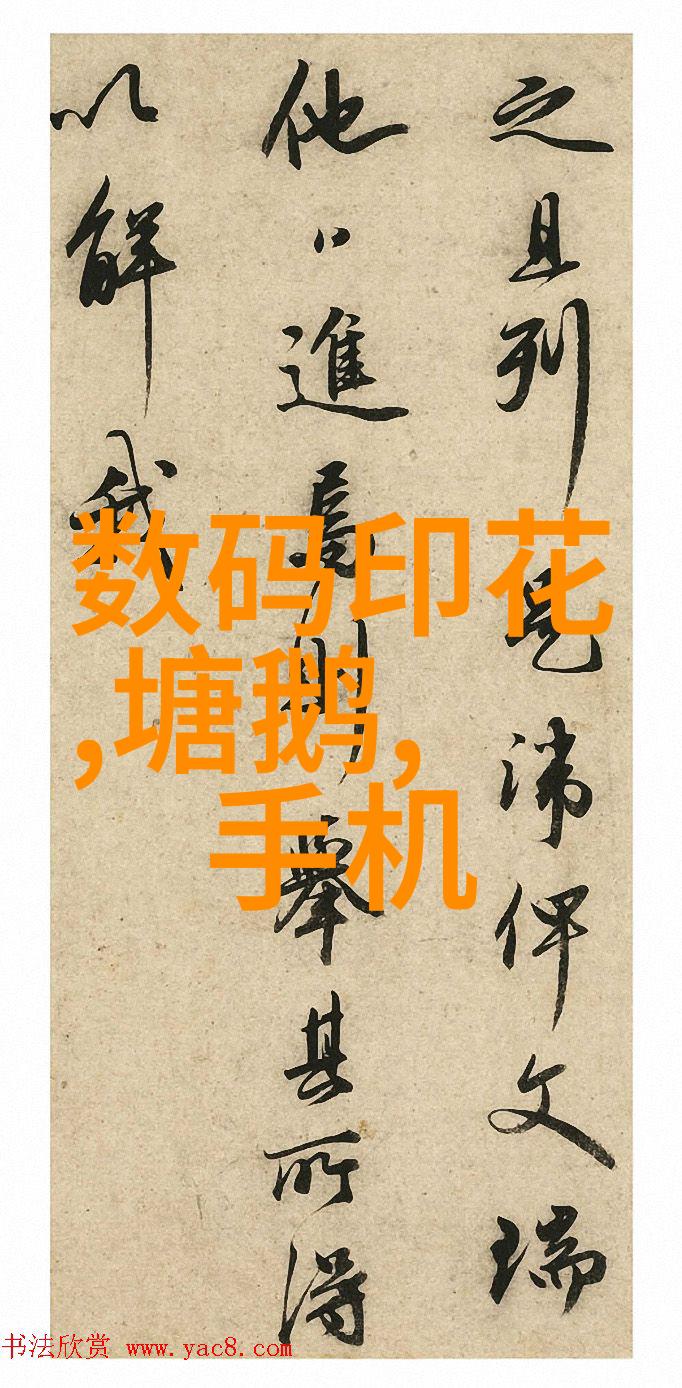 之且列是讳俾文瑞
他日進
舉其所得
以解我
数码印花
,塘鹅,
手机
书法欣赏 www.yac8.com